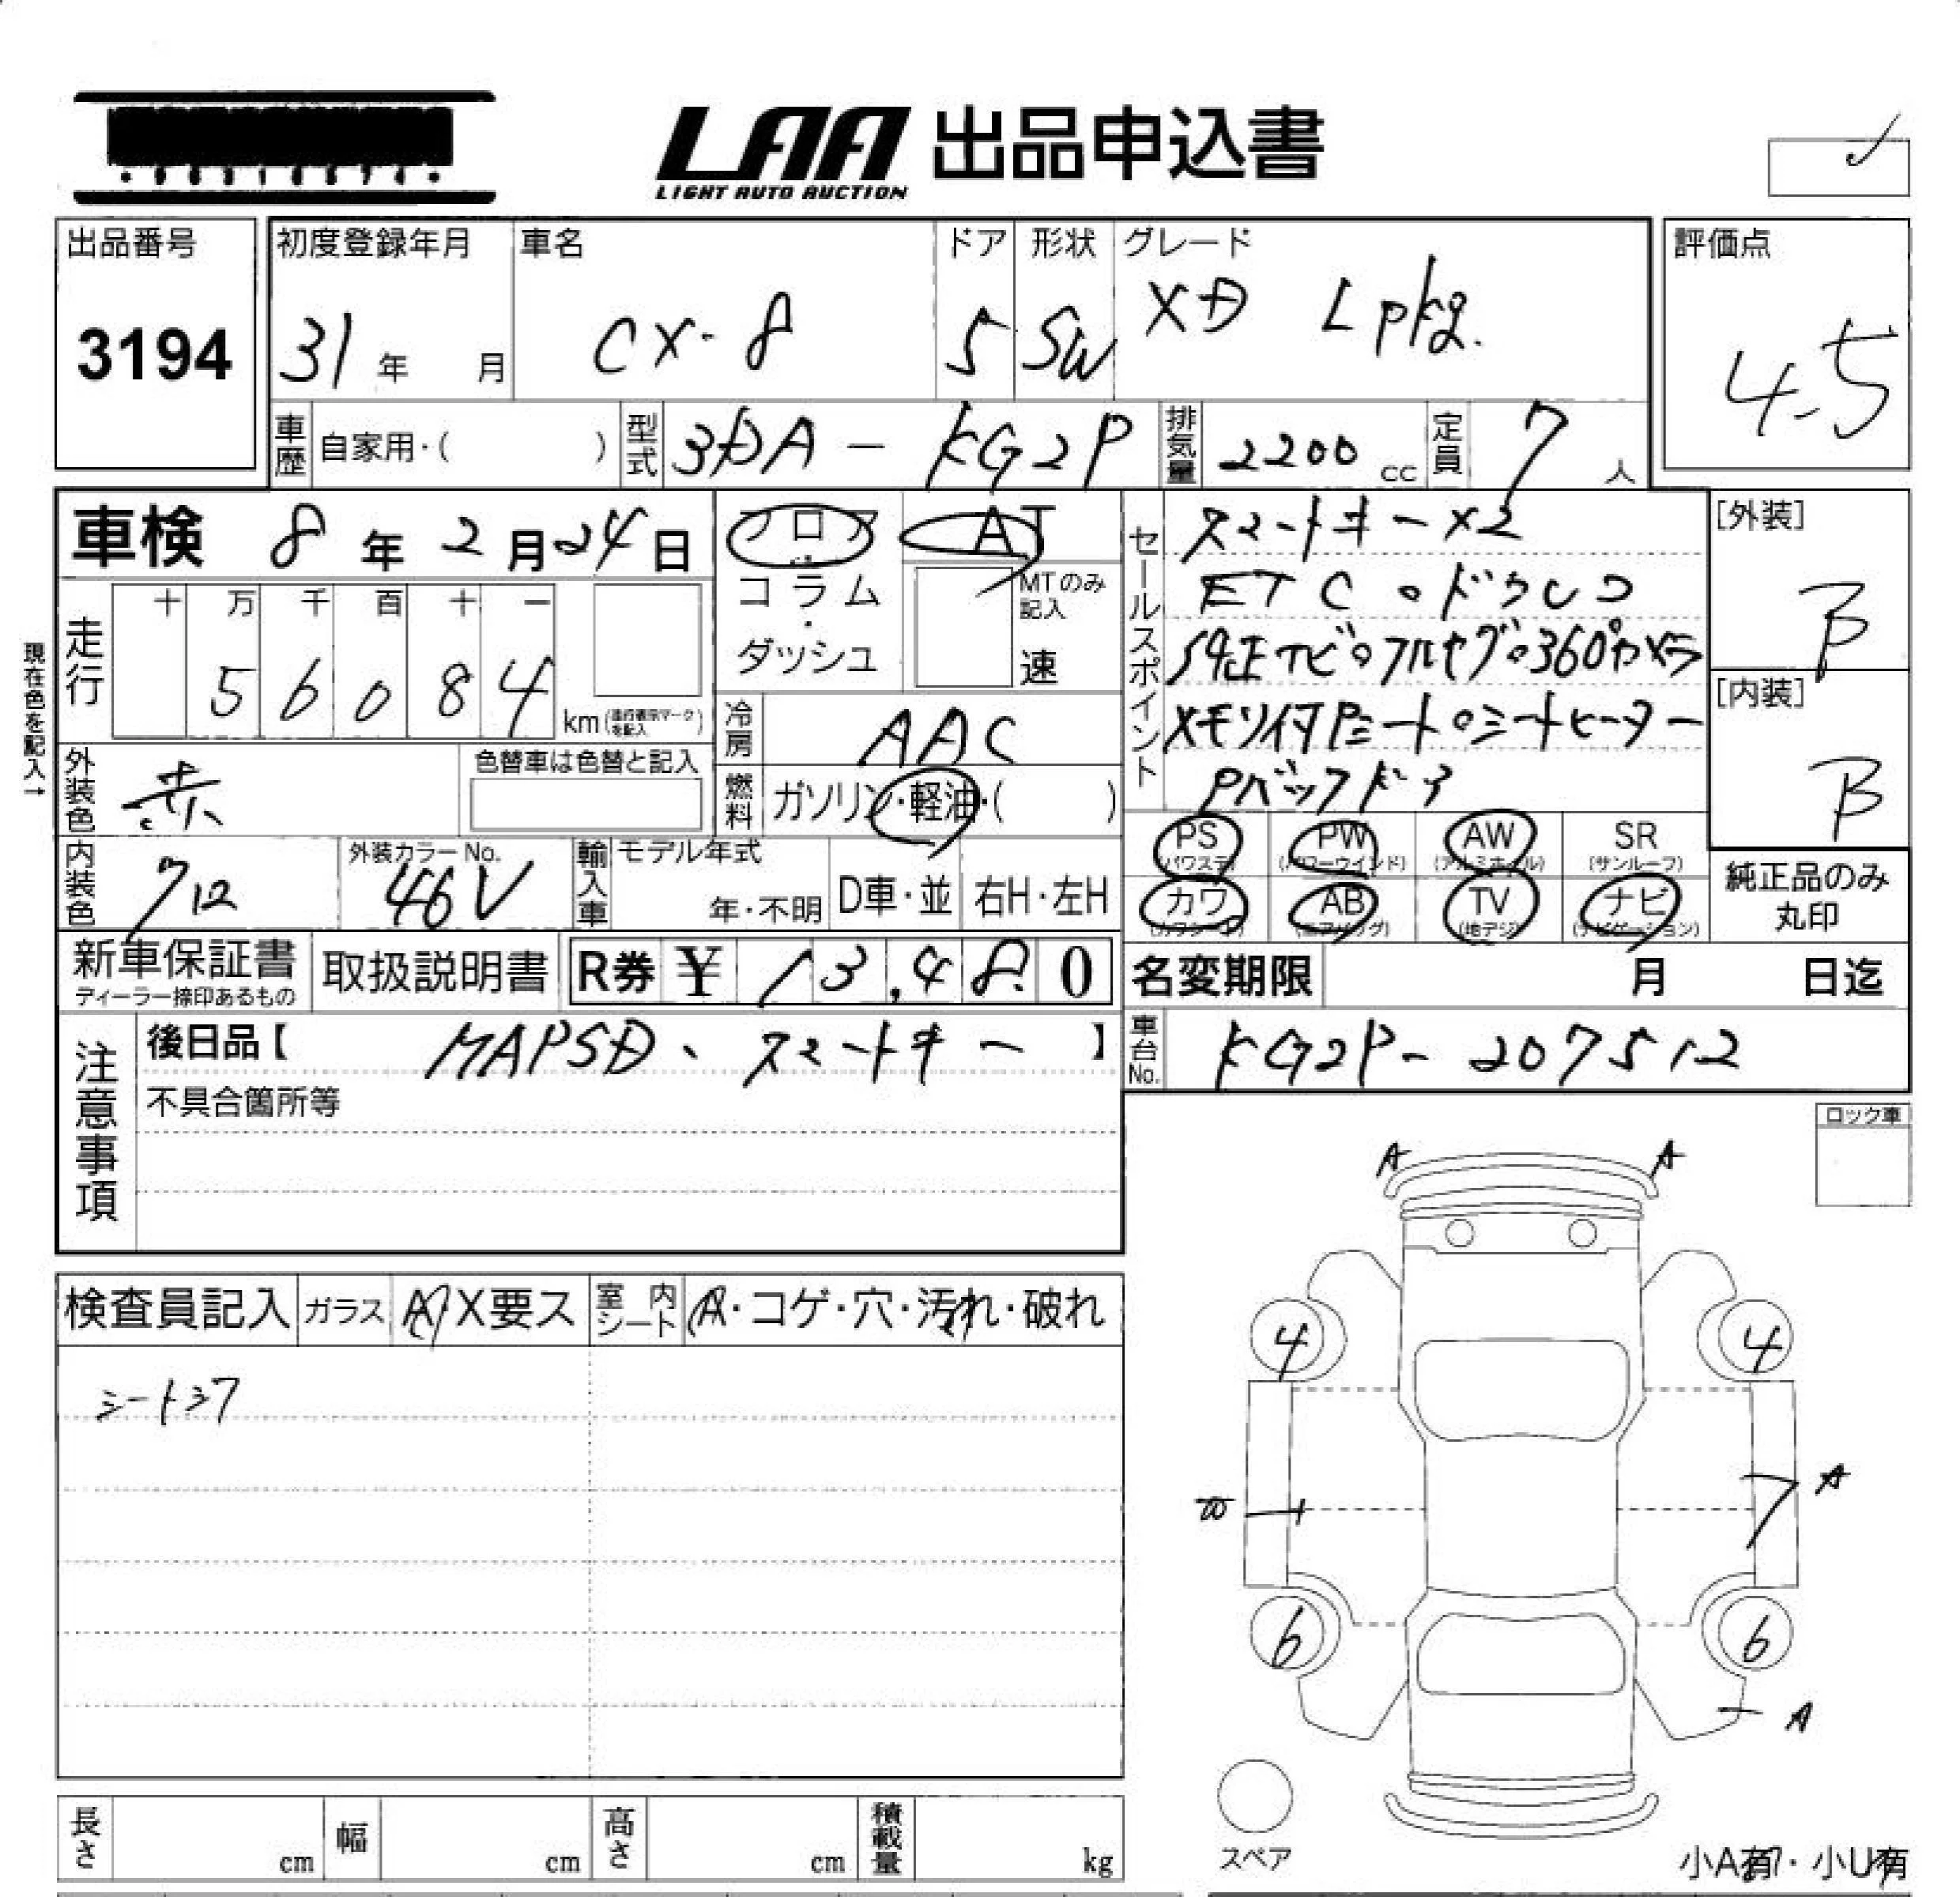 LAA 出品申込書
LIGHT AUTO AUCTION
出品番号
3194
初度登録年月
31年 月
車名
CX-8
ドア
5
形状
SW
グレード
XD Lpkg.
評価点
4.5
車歴 自家用・( )
型式 3DA-KG2P
排気量 2200 cc
定員 7 人
車検 8年2月24日
フロア
コラム
・
ダッシュ
AT
MTのみ記入
速
セールスポイント
スマートキー×2
ETC。ドラレコ
純正ナビ。フルセグ。360°カメラ
メモリ付Pシート。シートヒーター
Pバックドア
[外装]
B
[内装]
B
現在色を記入→
走行
十 万 千 百 十 一
5 6 0 8 4 km(走行表示マークを記入)
冷房 AAC
外装色 赤
色替車は色替と記入
燃料 ガソリン・軽油・( )
内装色 712
外装カラーNo.
46V
輸入車 モデル年式
年・不明
D車・並
右H・左H
PS
(パワステ)
PW
(パワーウインド)
AW
(アルミホイル)
SR
(サンルーフ)
カワ
(カワシート)
AB
(エアバッグ)
TV
(地デジ)
ナビ
(ナビゲーション)
純正品のみ
丸印
新車保証書
ディーラー捺印あるもの
取扱説明書
R券 ¥ 13,480
名変期限 月 日迄
注意事項
後日品【 MAPSD、スマートキー 】
不具合箇所等
車台No. KG2P-207512
ロック車
検査員記入
ガラス A X要ス
室内シート A・コゲ・穴・汚れ・破れ
シートシワ
A A
4 4
A
6 6
A
スペア
小A有・小U有
長さ cm
幅 cm
高さ cm
積載量 kg